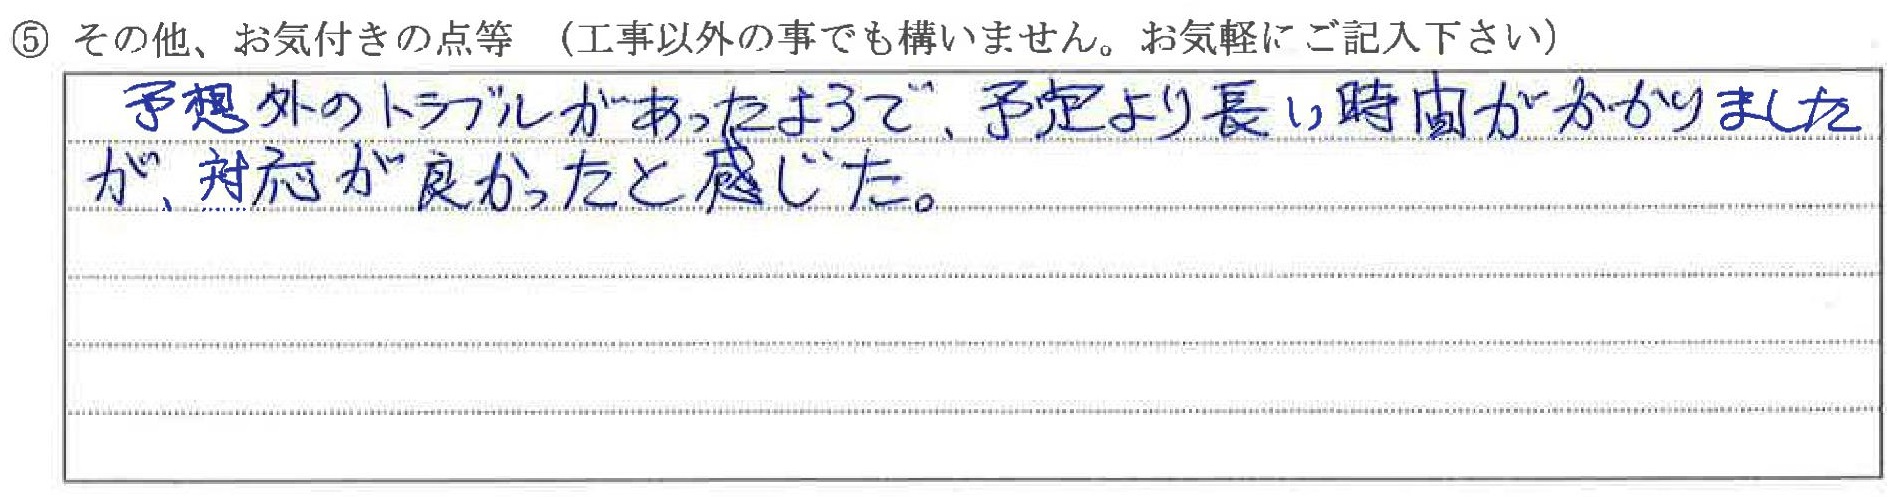 ⑤ その他、お気付きの点等 （工事以外の事でも構いません。お気軽にご記入下さい）
予想外のトラブルがあったようで、予定より長い時間がかかりました
が、対応が良かったと感じた。